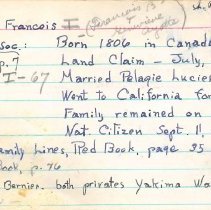 Francois I -
Francois B
+
Genevieve
soc.: Born 1806 in Canada
p. 7 Land Claim - July,
I-67 Married Pelagie Lucier
Went to California for
Family remained on
Nat. Citizen Sept. 11,
amily Lines, Red Book, page 35
ook, p. 76
Bernier. both privates Yakima Wa